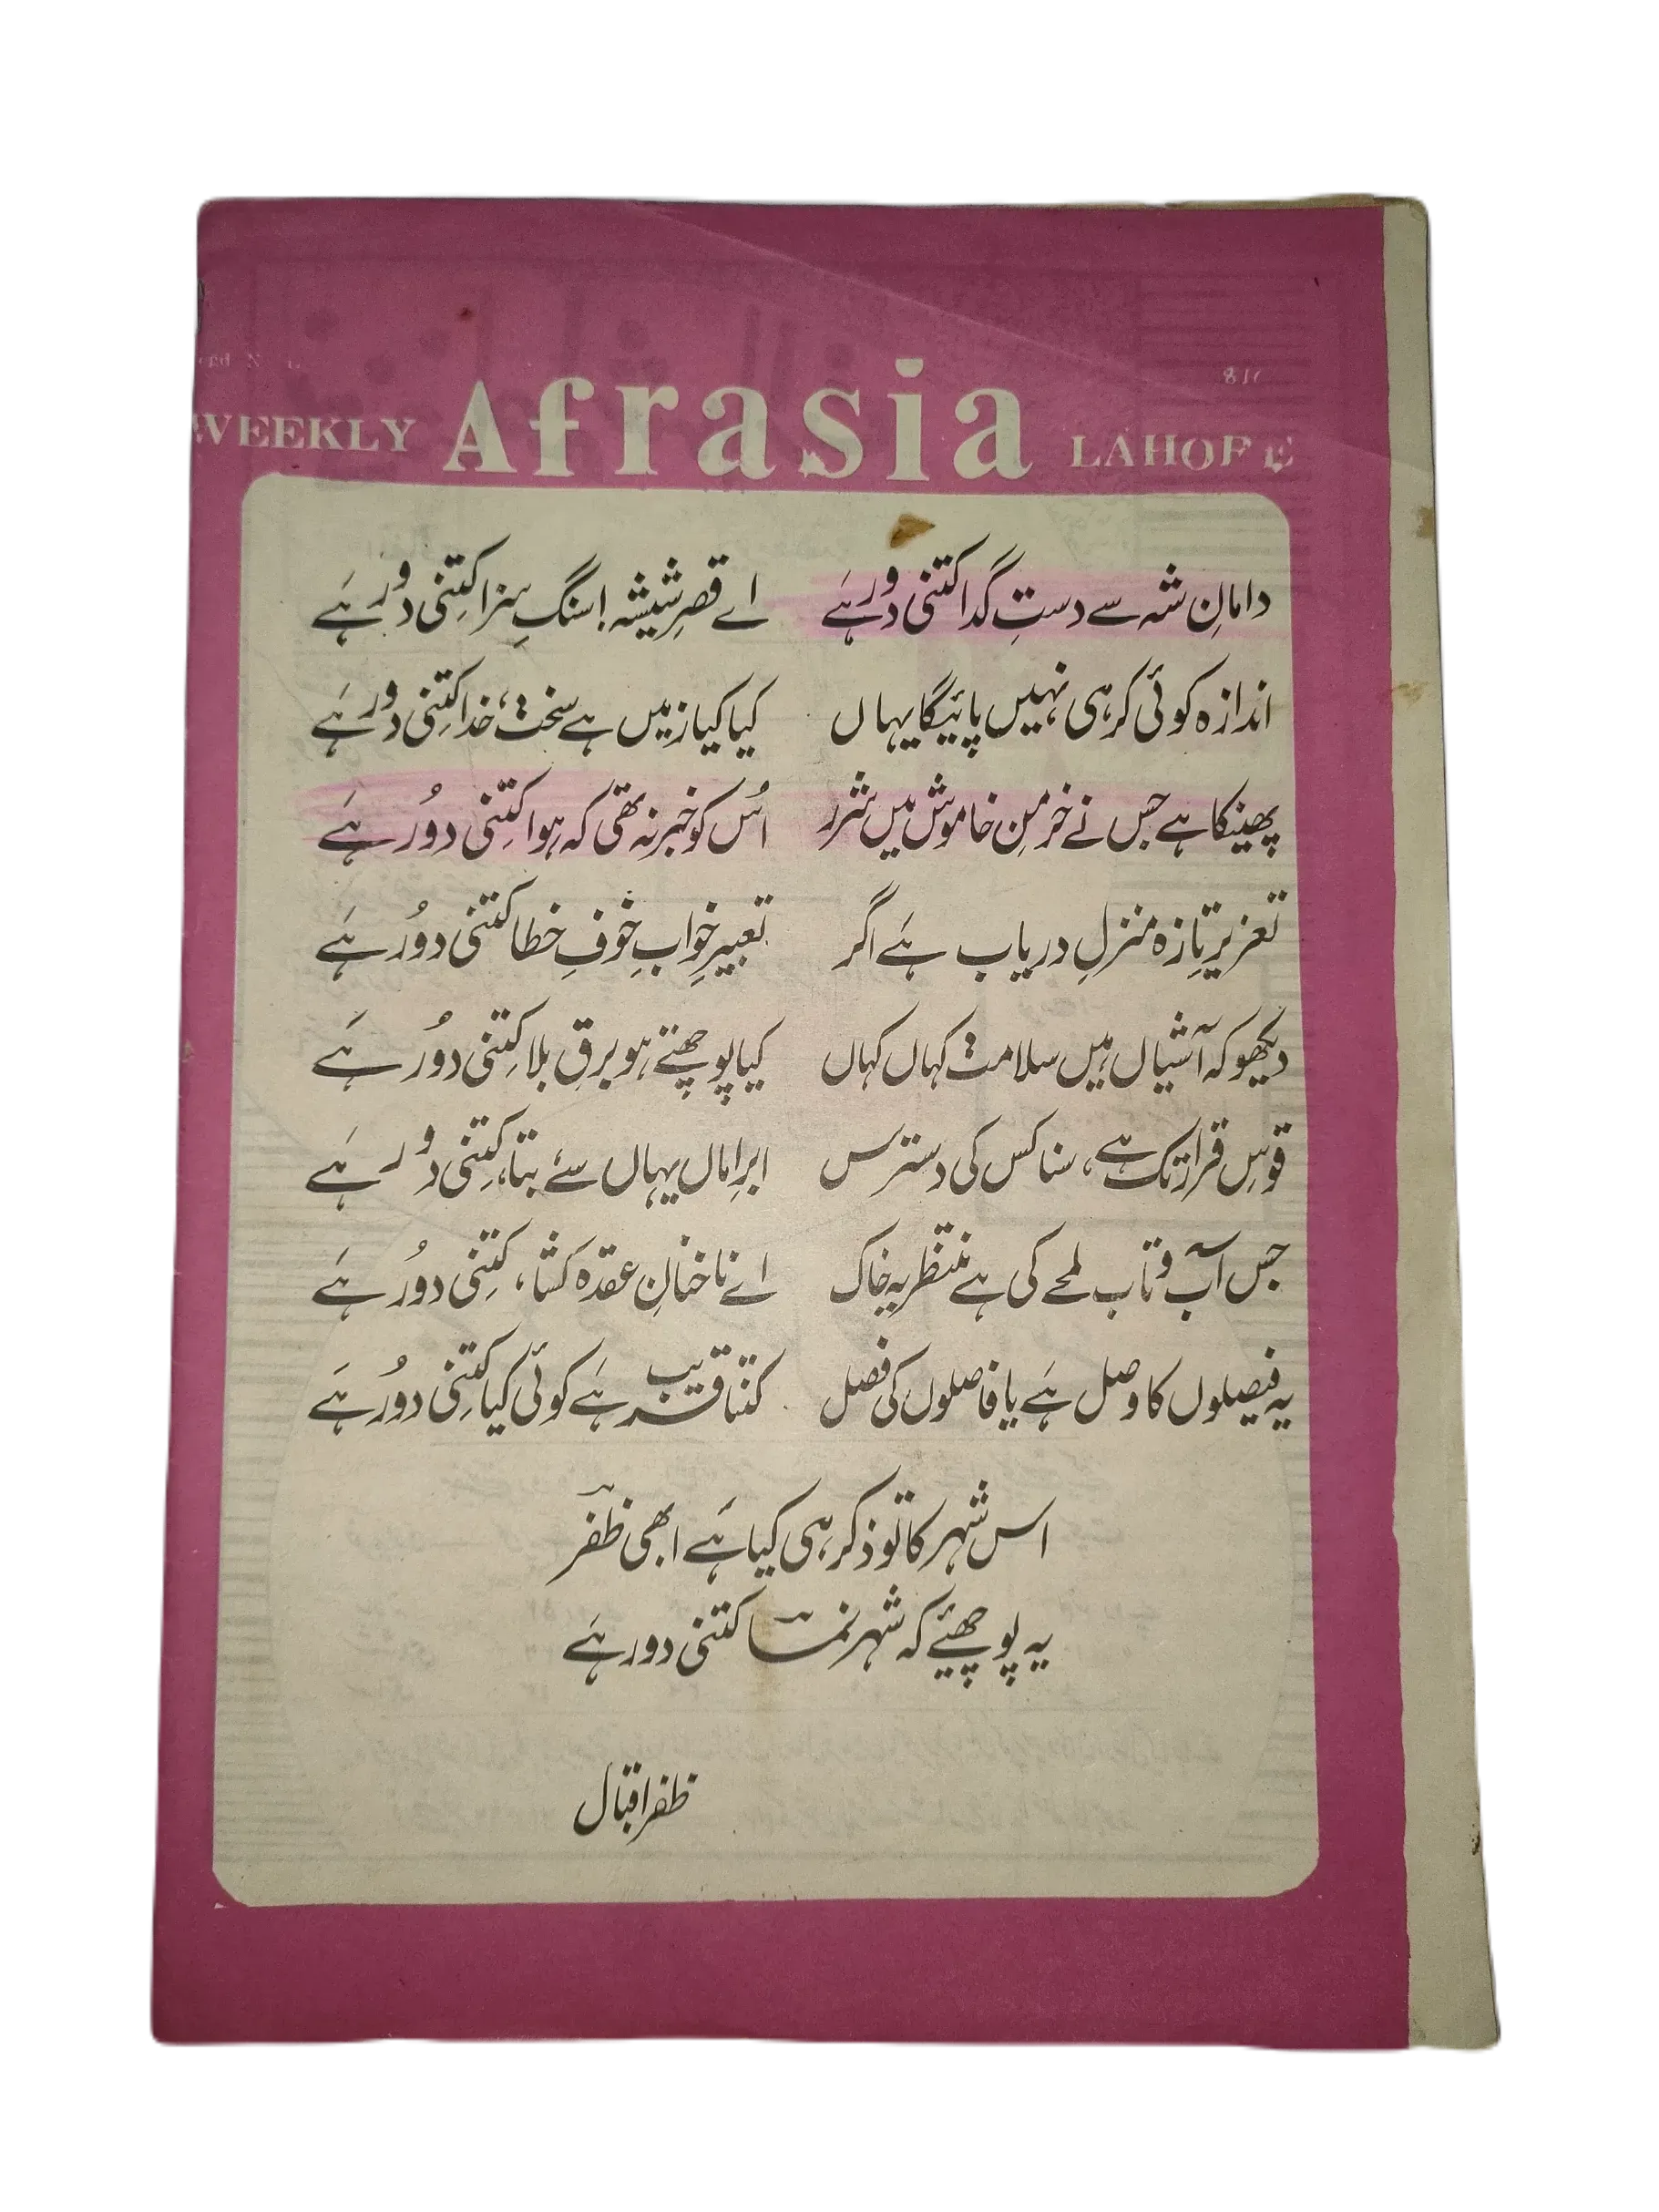 WEEKLY Afrasia LAHORE
دامانِ شہ سے دستِ گدا کتنی دور ہے اے قصرِ شیشہ! سنگِ سزا کتنی دور ہے
اندازہ کوئی کر ہی نہیں پائیگا یہاں کیا کیا زمیں ہے سخت، خدا کتنی دور ہے
پھینکا ہے جس نے خرمنِ خاموش میں شرر اُس کو خبر نہ تھی کہ ہوا کتنی دُور ہے
تعزیرِ تازہ منزلِ دریاب ہے اگر تعبیرِ خوابِ خوفِ خطا کتنی دُور ہے
دیکھو کہ آشیاں ہیں سلامت کہاں کہاں کیا پوچھتے ہو برقِ بلا کتنی دُور ہے
قوسِ قرار تک ہے، سنا کس کی دسترس ابرِ اماں یہاں سے بتا، کتنی دور ہے
جس آب و تاب لمحے کی ہے منتظر یہ خاک اے ناخنانِ عقدہ کشا، کتنی دُور ہے
یہ فیصلوں کا وصل ہے یا فاصلوں کی فصل کتنا قریب ہے کوئی کیا کتنی دُور ہے
اس شہر کا تو ذکر ہی کیا ہے ابھی ظفر
یہ پوچھئے کہ شہر نما کتنی دور ہے
ظفر اقبال